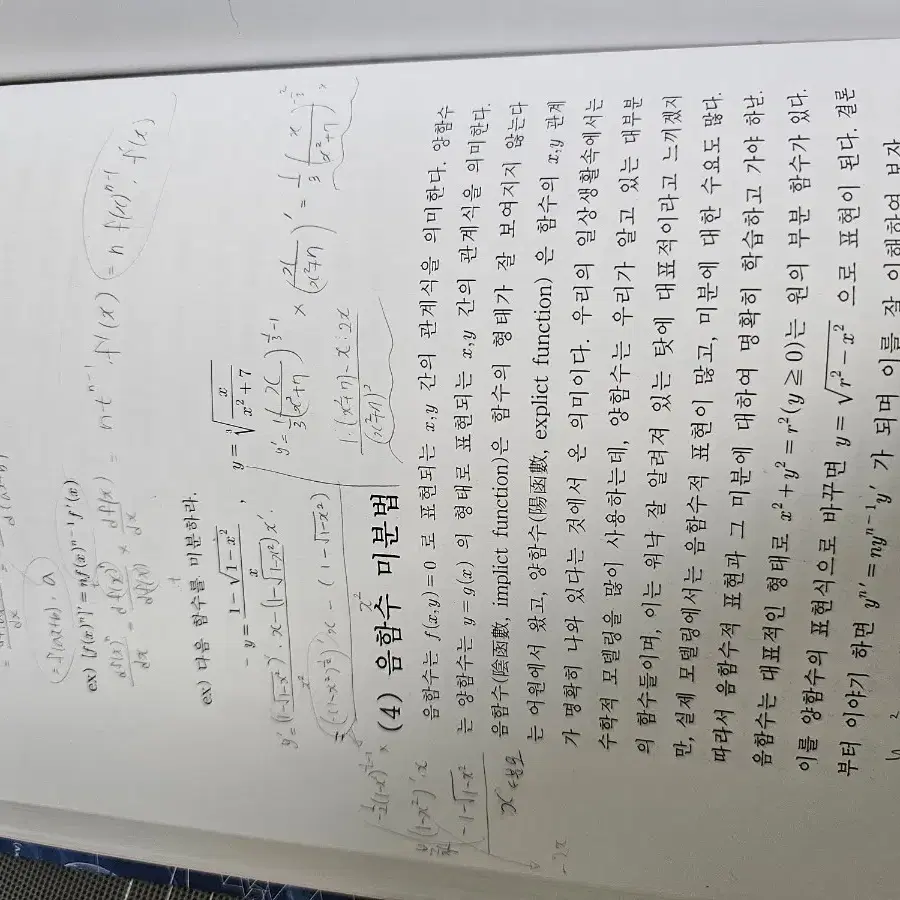 (=f'(ax+b)·a
ex) [f(x)^n]' = nf(x)^{n-1}f'(x)
df(x)^n/dx = df(x)^n/df(x) × df(x)/dx = n·t^{n-1}·f'(x) (= n f(x)^{n-1}·f'(x)
ex) 다음 함수를 미분하라.
- y = (1-√(1-x²))/x , y = ³√(x/(x²+7))
y' = (1-√(1-x²))'·x-(1-√(1-x²))x' / x²
y' = 1/3 (x/(x²+7))^{1/3-1} × (x/(x²+7))' = 1/3 (x/(x²+7))
1·(x²+7)-x·2x / (x²+7)²
(4) 음함수 미분법
음함수는 f(x,y)=0 로 표현되는 x,y 간의 관계식을 의미한다. 양함수
는 양함수는 y=g(x) 의 형태로 표현되는 x,y 간의 관계식을 의미한다.
음함수(陰函數, implict function)은 함수의 형태가 잘 보여지지 않는다
는 어원에서 왔고, 양함수(陽函數, explict function) 은 함수의 x,y 관계
가 명확히 나와 있다는 것에서 온 의미이다. 우리의 일상생활속에서는
수학적 모델링을 많이 사용하는데, 양함수는 우리가 알고 있는 대부분
의 함수들이며, 이는 워낙 잘 알려져 있는 탓에 대표적이라고 느끼겠지
만, 실제 모델링에서는 음함수적 표현이 많고, 미분에 대한 수요도 많다.
따라서 음함수적 표현과 그 미분에 대하여 명확히 학습하고 가야 하난.
음함수는 대표적인 형태로 x²+y²=r²(y≧0)는 원의 부분 함수가 있다.
이를 양함수의 표현식으로 바꾸면 y=√(r²-x²) 으로 표현이 된다. 결론
부터 이야기 하면 y^n'=ny^{n-1}y' 가 되며 이를 잘 이해하여 보자